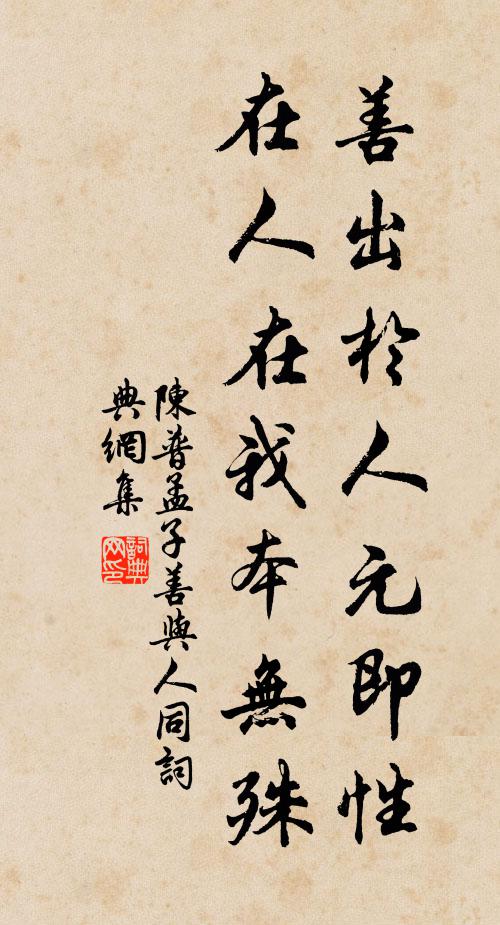 善出於人元即性
在人在我本無殊
陳普孟子善與人同詞
典網集
詞典
网印